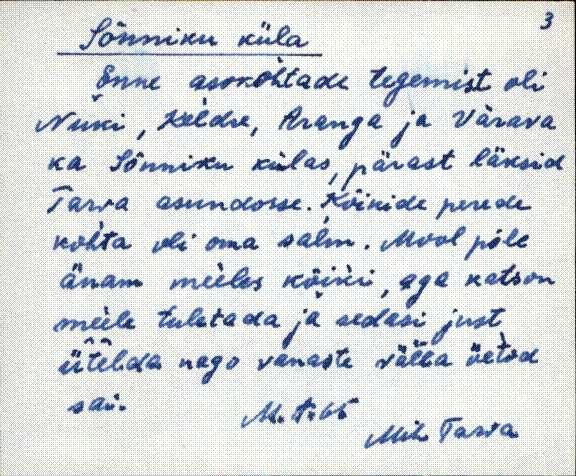 3
Sõnniku küla
Enne asukohtade tegemist oli
Nuki, Keldre, Aranga ja Värava
ka Sõnniku külas, pärast läksid
Tarva asundosse. Kõikide perede
kohta oli oma salm. Mool põle
änam meeles kõiki, aga katson
meele tuletada ja sedasi just
ütelda nago vanaste välla öetod
sai.
Mih. Tarva